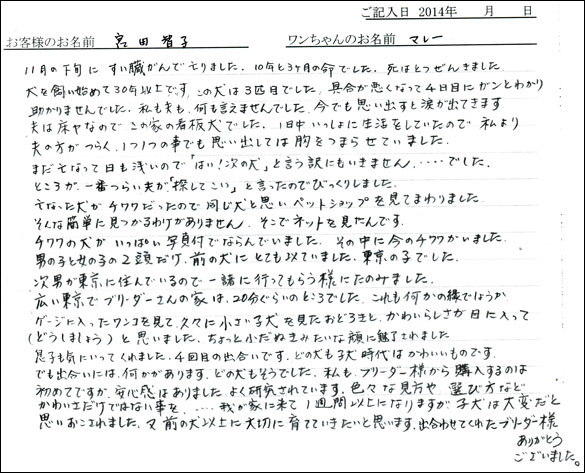 ご記入日 2014年 月 日
お客様のお名前 宮田 智子 ワンちゃんのお名前 マレー
11月の下旬に すい臓がんで亡りました。10年と3ヶ月の命でした。死はとつぜんきました
犬を飼い始めて30年以上です。この犬は3匹目でした。具合が悪くなって4日目にガンとわかり
助かりませんでした。私も夫も、何も言えませんでした。今でも思い出すと涙が出てきます
夫は床ヤなので この家の看板犬でした。1日中 いっしょに生活をしていたので 私より
夫の方がつらく、1つ1つの事でも思い出しては 胸をつまらせていました。
まだ亡なって日も浅いので「はい!次の犬」と言う訳にもいきません、・・・・でした。
ところが、一番つらい夫が「探してこい」と言ったのでびっくりしました。
亡なった犬が チワワだったので 同じ犬と思い ペットショップを見てまわりました。
そんな簡単に見つかるわけがありません。そこでネットを見たんです。
チワワの犬が いっぱい 写真付でならんでいました。その中に今のチワワがいました。
男の子と女の子の2頭だけ、前の犬に とても似ていました。東京の子でした。
次男が東京に住んでいるので 一緒に行ってもらう様にたのみました。
広い東京で ブリーダーさんの家は、20分ぐらいのところでした。これも何かの縁でしょうか
ゲージに入ったワンコを見て、久々に小さい子犬を見たおどろきと、かわいらしさが目に入って
(どうしましょう)と思いました。ちょっと小だぬきみたいな顔に魅了されました
息子も気にいってくれました。4回目の出合いです。どの犬も子犬時代はかわいいものです。
でも出合いには、何かがあります。どの犬もそうでした。私も、ブリーダー様から購入するのは
初めてですが、安心感はありました。よく研究されています。色々な見方や 選び方など
かわいさだけではない事を、・・・・我が家に来て 1週間以上になりますが 子犬は大変だと
思いおこされました。又 前の犬以上に大切に育てていきたいと思います。出合わせてくれたブリーダー様
ありがとう
ございました。